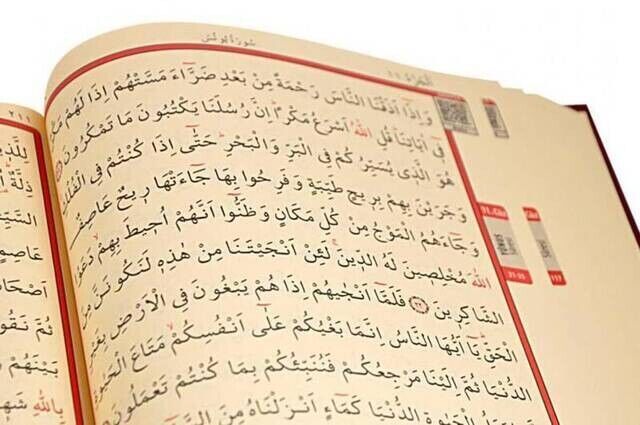 سُورَةُ يُونُسَ
وَاِذَٓا اَذَقْنَا النَّاسَ رَحْمَةً مِنْ بَعْدِ ضَرَّٓاءَ مَسَّتْهُمْ اِذَا لَهُمْ
فِٓي اٰيَاتِنَاۜ قُلِ اللّٰهُ اَسْرَعُ مَكْراًۜ اِنَّ رُسُلَنَا يَكْتُبُونَ مَا تَمْكُرُونَ
هُوَ الَّذ۪ي يُسَيِّرُكُمْ فِي الْبَرِّ وَالْبَحْرِۜ حَتّٰٓى اِذَا كُنْتُمْ فِي الْفُلْكِۚ
وَجَرَيْنَ بِهِمْ بِر۪يحٍ طَيِّبَةٍ وَفَرِحُوا بِهَا جَٓاءَتْهَا ر۪يحٌ عَاصِفٌ
وَجَٓاءَهُمُ الْمَوْجُ مِنْ كُلِّ مَكَانٍ وَظَنُّٓوا اَنَّهُمْ اُح۪يطَ بِهِمْۙ دَعَوُا
اللّٰهَ مُخْلِص۪ينَ لَهُ الدّ۪ينَۚ لَئِنْ اَنْجَيْتَنَا مِنْ هٰذِه۪ لَنَكُونَنَّ مِنَ
الشَّاكِر۪ينَ ﴿٢٢﴾ فَلَمَّٓا اَنْجٰيهُمْ اِذَا هُمْ يَبْغُونَ فِي الْاَرْضِ بِغَيْرِ
الْحَقِّۜ يَٓا اَيُّهَا النَّاسُ اِنَّمَا بَغْيُكُمْ عَلٰٓى اَنْفُسِكُمْۙ مَتَاعَ الْحَيٰوةِ
الدُّنْيَاۘ ثُمَّ اِلَيْنَا مَرْجِعُكُمْ فَنُنَبِّئُكُمْ بِمَا كُنْتُمْ تَعْمَلُونَ
الْحَيٰوةِ الدُّنْيَا كَمَٓاءٍ اَنْزَلْنَاهُ مِنَ
٢١١
لِلَّذ۪ينَ
ذِلَّةٌۜ
عَاصِمٍۚ
ثُمَّ
بَيْنَهُمْ
بِاللّٰهِ